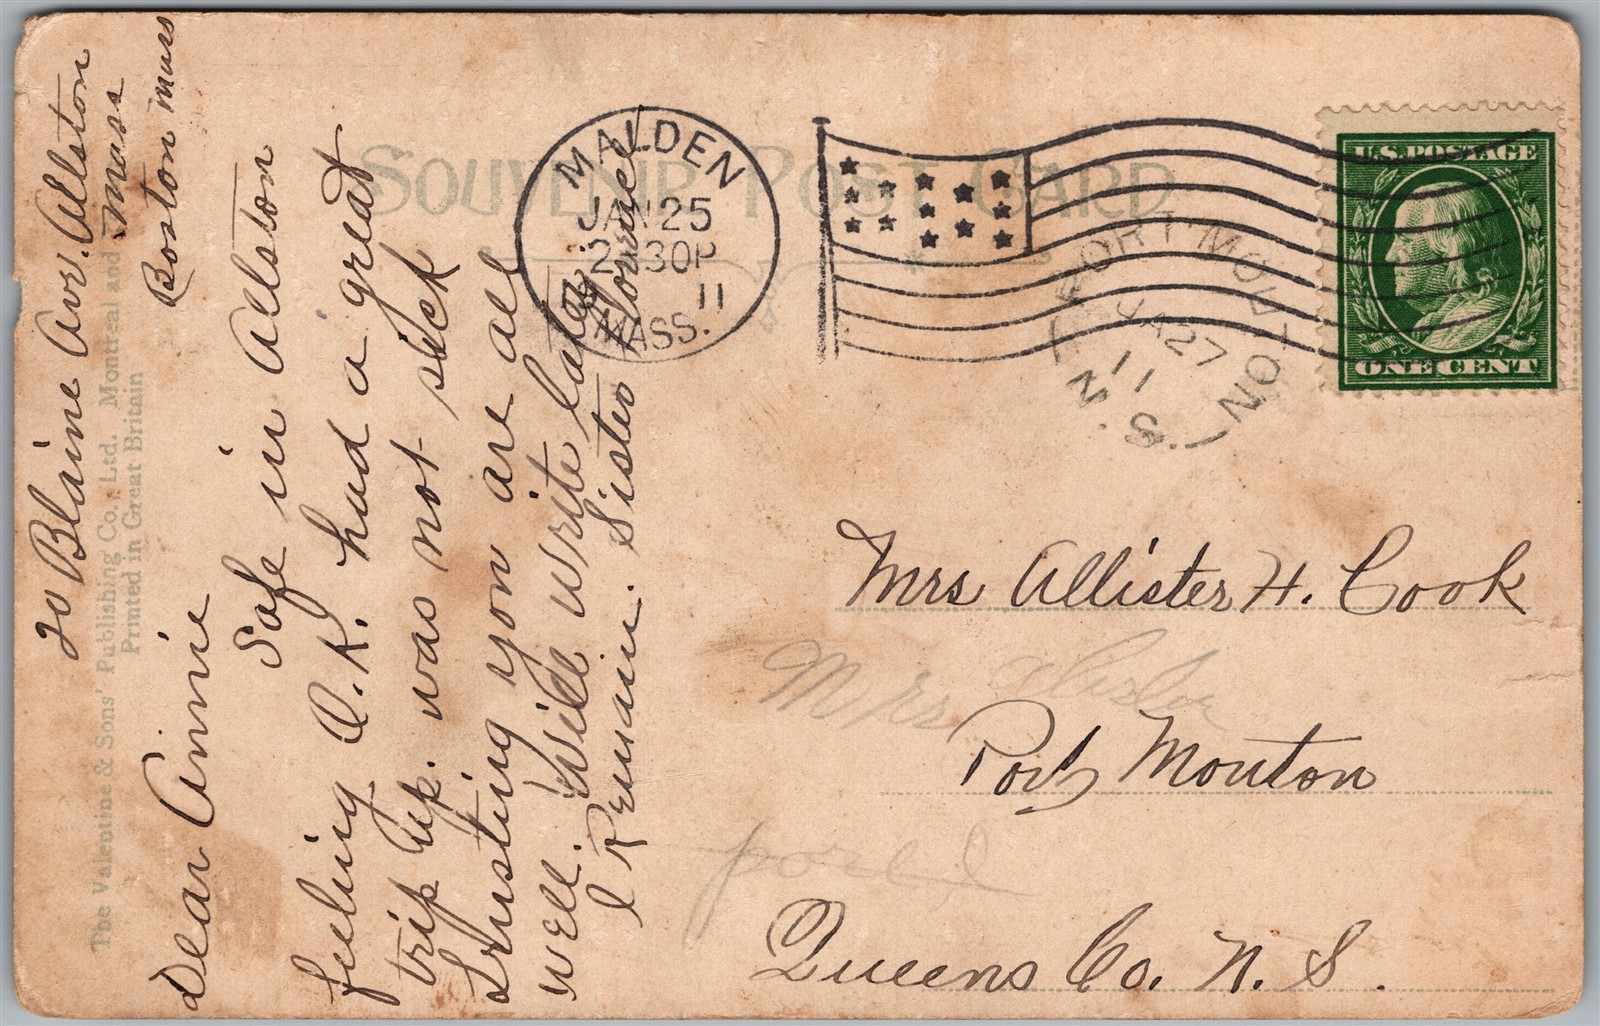 SOUVENIR POST CARD
The Valentine & Sons' Publishing Co., Ltd. Montreal and
Printed in Great Britain
20 Blaine Ave. Allston
Mass
Boston Mass
Dear Annie
Safe in Allston
feeling O.K. had a great
trip up. was not sick
Trusting you are all
well. Will write later
I Remain. Sister
MALDEN
JAN 25
2 30P
11
MASS.
PORT MOUTON
JA 27
11
N.S.
U.S. POSTAGE
ONE CENT
Mrs Allister H. Cook
Mrs Alister
Port Mouton
port
Queens Co. N. S.